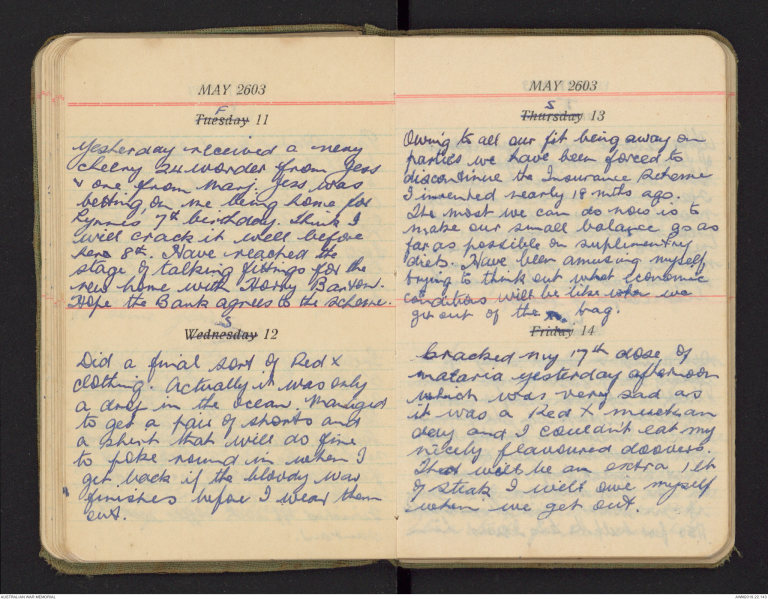 MAY 2603
F
Tuesday 11
Yesterday received a very
cheery 24 worder from Jess
& one from Marj. Jess was
betting on me being home for
Lynne's 7th birthday. Think I
will crack it well before
her 8th. Have reached the
stage of talking fittings for the
new home with Harry Barton.
Hope the Bank agrees to the scheme.
S
Wednesday 12
Did a final sort of Red X
clothing. Actually it was only
a drop in the ocean. Managed
to get a pair of shorts and
a shirt that will do fine
to poke round in when I
get back if the bloody war
finishes before I wear them
out.
MAY 2603
S
Thursday 13
Owing to all our fit being away on
parties we have been forced to
discontinue the Insurance Scheme
I invented nearly 18 mths ago.
The most we can do now is to
make our small balance go as
far as possible on suplimentry
diets. Have been amusing myself
trying to think out what Economic
conditions will be like when we
get out of the bag.
Friday 14
Cracked my 17th dose of
malaria yesterday afternoon
which was very sad as
it was a Red X
day and I couldn't eat my
nicely flavoured doovers.
That will be an extra 1 lb
of steak I will owe myself
when we get out.
AUSTRALIAN WAR MEMORIAL